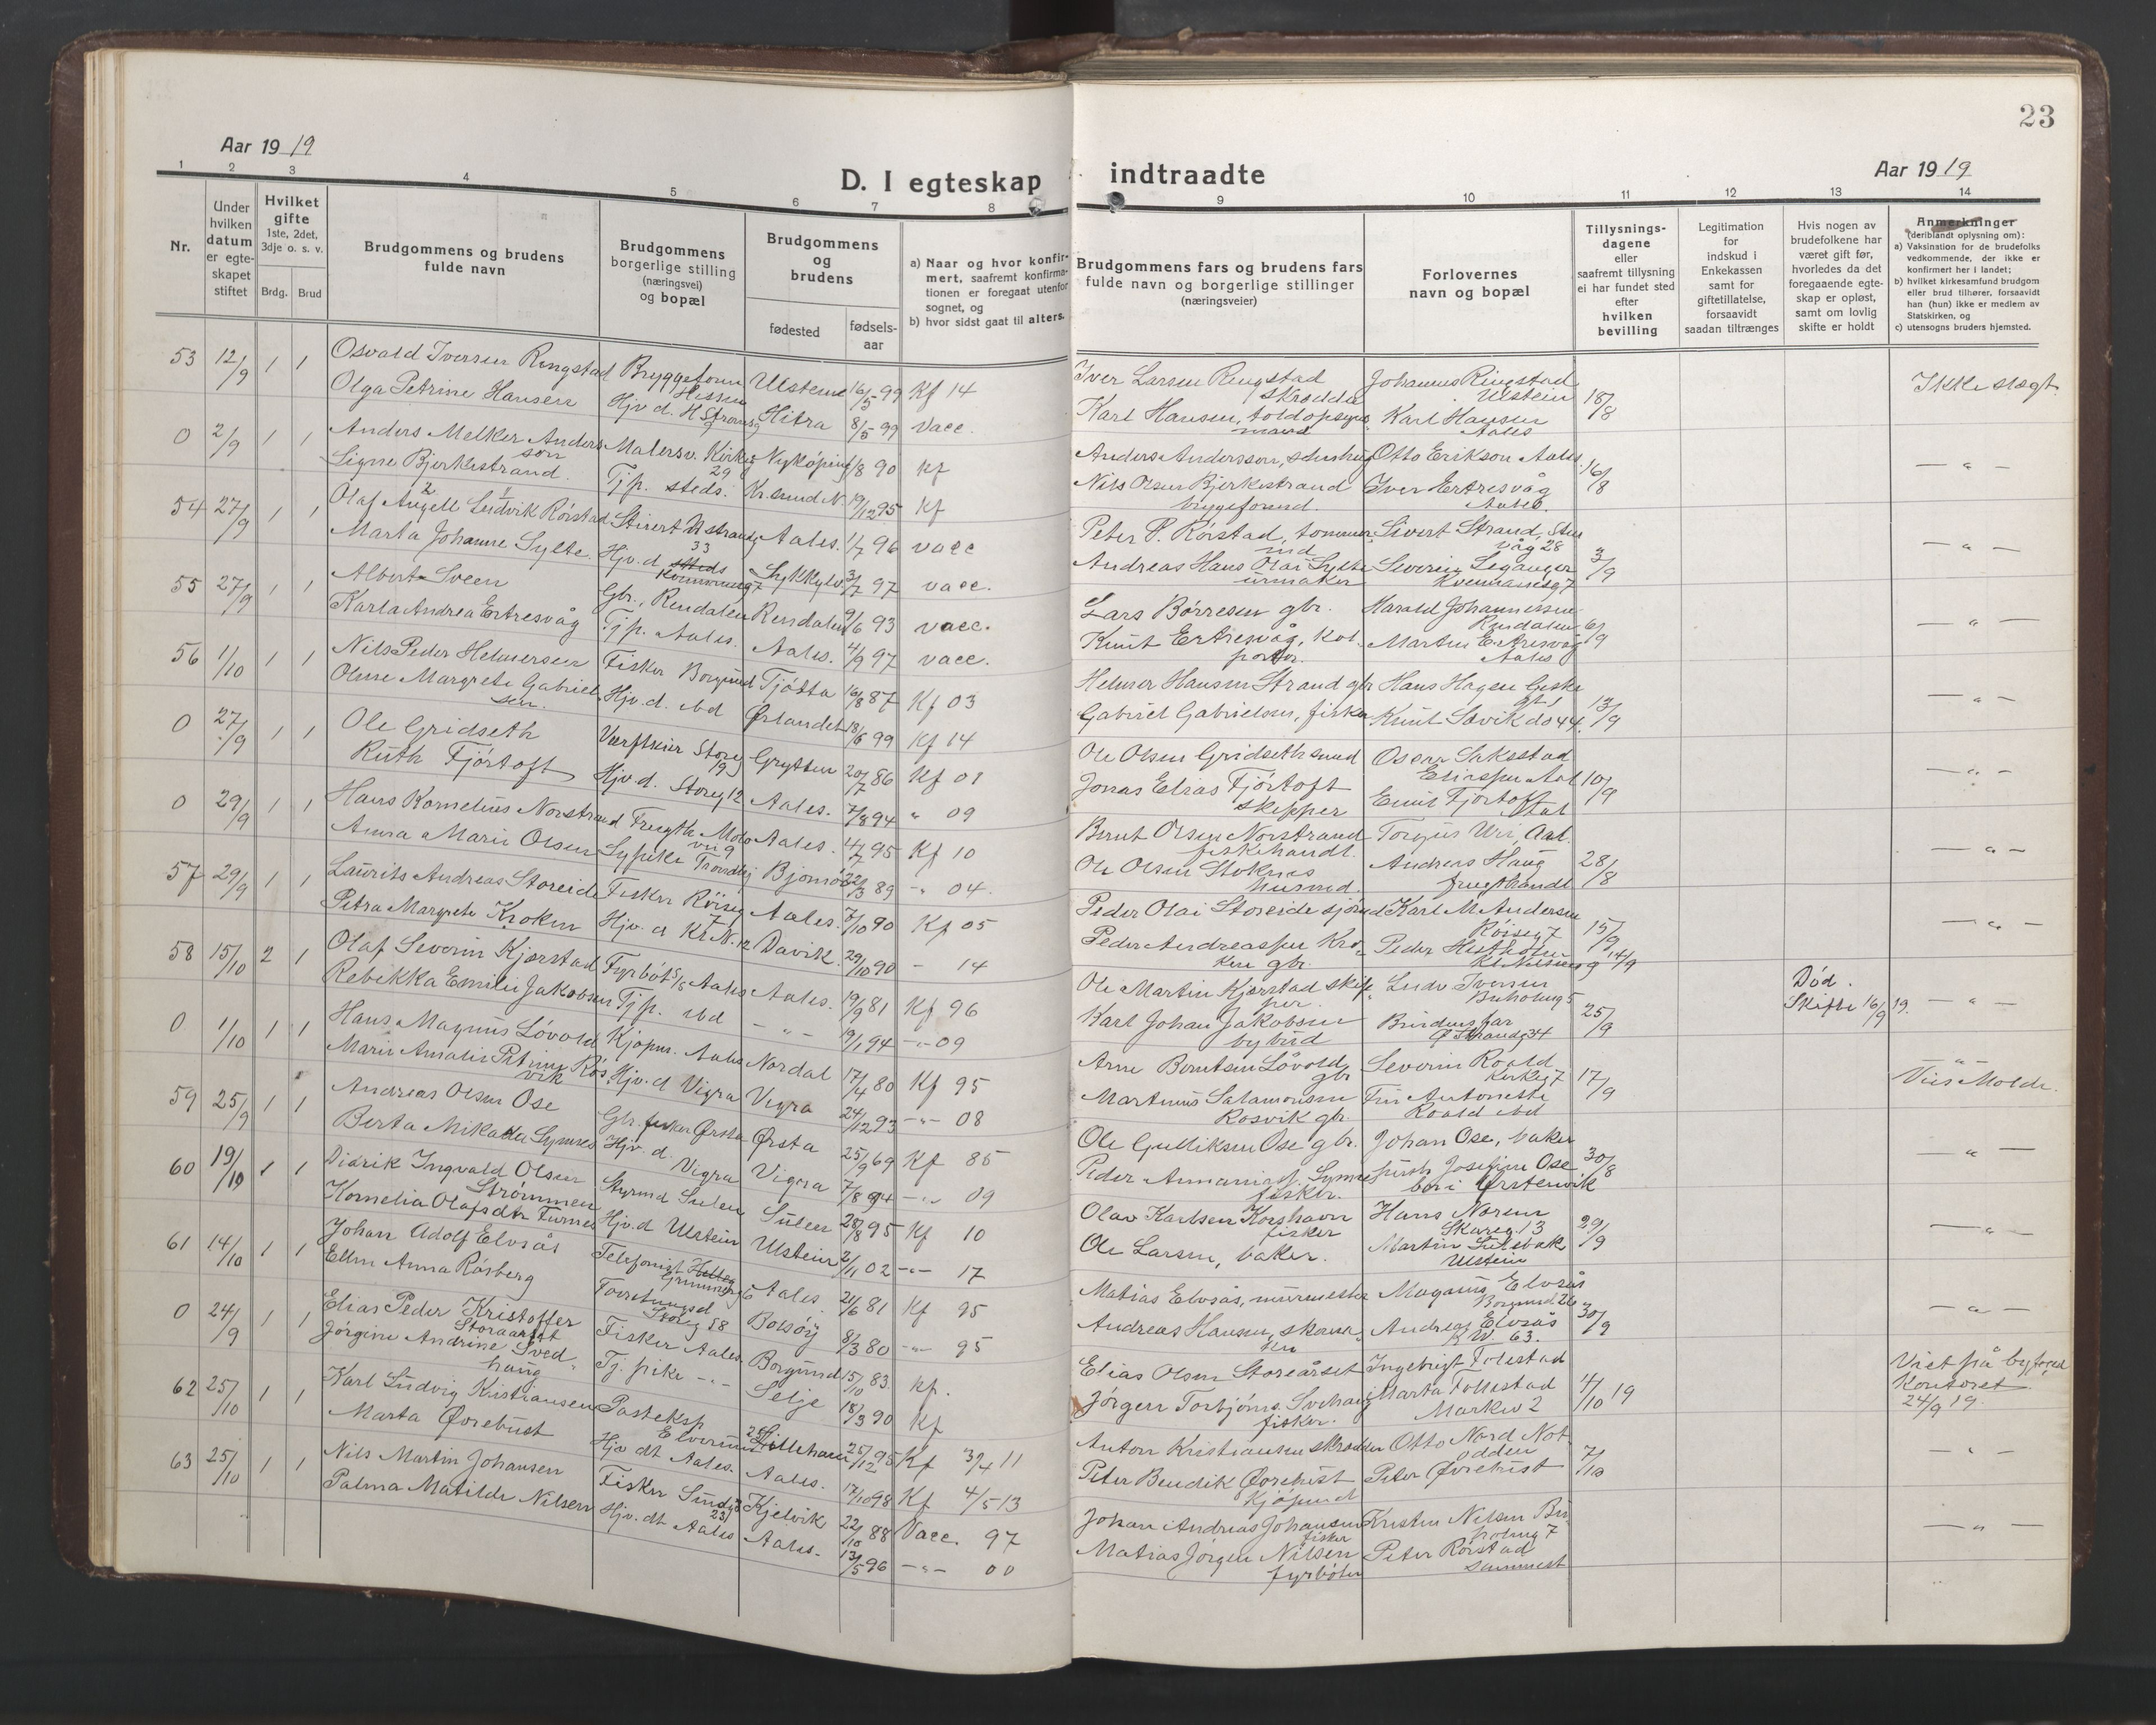 23
Aar 1919
Aar 1919
D. I egteskap indtraadte
1 2 3 4 5 6 7 8 9 10 11 12 13 14
Nr.
Under hvilken datum er egte-skapet stiftet
Hvilket gifte 1ste, 2det, 3dje o. s. v.
Brdg. Brud
Brudgommens og brudens fulde navn
Brudgommens borgerlige stilling (næringsvei) og bopæl
Brudgommens og brudens
fødested
fødsels-aar
a) Naar og hvor konfir-mert, saafremt konfirma-tionen er foregaat utenfor sognet, og
b) hvor sidst gaat til alters.
Brudgommens fars og brudens fars fulde navn og borgerlige stillinger (næringsveier)
Forlovernes navn og bopæl
Tillysnings-dagene eller saafremt tillysning ei har fundet sted efter hvilken bevilling
Legitimation for indskud i Enkekassen samt for giftetillatelse, forsaavidt saadan tiltrænges
Hvis nogen av brudefolkene har været gift før, hvorledes da det foregaaende egte-skap er opløst, samt om lovlig skifte er holdt
Anmerkninger (deriblandt oplysning om):
a) Vaksination for de brudefolks vedkommende, der ikke er konfirmert her i landet;
b) hvilket kirkesamfund brudgom eller brud tilhører, forsaavidt han (hun) ikke er medlem av Statskirken, og
c) utensogns bruders hjemsted.
53 12/9 1 1 Osvald Iversen Ringstad Bryggeform Hessen Ulstein 16/5 99 Kf 14 Iver Larsen Ringstad skrædder Johannes Ringstad Ulstein 18/8 Ikke slægt
Olga Petrine Hansen Hjv. d. Hitra 8/5 99 Vacc. Karl Hansen, toldopsynsmand Karl Hansen Aales
0 2/9 1 1 Anders Melker Andersson Malersv. Kirkeg 29 Nyköping 1/8 90 Kf Anders Andersson, Otto Erikson Aales. 16/8 - " -
Signe Bjerkestrand. Tjp. steds. Kr.sund N. 19/12 95 Kf Nils Olsen Bjerkestrand bryggeformd. Iver Ertresvåg Aales.
54 27/9 1 1 Olaf Angell Ludvik Rörstad Stuert N strandg 33 Aales. 11/7 96 vacc Peter P. Rörstad, tømmermd Sivert Strand, Stenvåg 28 3/9 - " -
Marta Johanne Sylte. Hjv. d. steds Sykkylv. 3/7 97 vacc. Andreas Hans Olai Sylte urmaker Severin Leganger
55 27/9 1 1 Albert Sveen Gbr., Rendalen Rendalen 9/6 93 vacc. Lars Börresen gbr. Harald Johannessen Rendalen 6/9 - " -
Karla Andrea Ertresvåg Tjp. Aales. Aales. 4/9 97 vacc. Knut Ertresvåg, kolportør. Martin Ertresvåg Aales
56 1/10 1 1 Nils Peder Helmersen Fisker Borgund Tjötta 16/8 87 Kf 03 Helmer Hansen Strand gbr Hans Hagen 13/9 - " -
Oline Margrete Gabrielsen. Hjv. d. ibd Ørlandet 18/6 99 Kf 14 Gabriel Gabrielsen, fisker Knut Sævik do 44.
0 27/9 1 1 Ole Gridseth Storg 19 Grytten 20/7 86 Kf 01 Ole Olsen Gridseth 10/9 - " -
Ruth Fjörtoft Hjv. d. Storg 12 Aales. 7/8 94 " 09 Jonas Elias Fjörtoft skipper Emil Fjörtoft Aal
0 29/9 1 1 Hans Kornelius Norstrand Frugth. Molovei 9 Aales. 4/7 95 Kf 10 Bernt Olsen Norstrand fiskehandl. Torgus Uri, Aal. 28/8 - " -
Anna Marie Olsen Sypike Bjørnör 22/3 89 -"- 04. Ole Olsen Stoknes husmd. Andreas Haug frugthandl
57 29/9 1 1 Laurits Andreas Storeide Fisker Röiseg 7 Aales. 7/10 90 Kf 05 Peder Olai Storeide sjömd Karl M Andersen Röiseg 7 15/9 - " -
Petra Margrete Kroken Hjv. d Kr. N. 12 Davik. 29/10 90 - 14 Peder Andreassen Kroken gbr. Peder 14/9
58 15/10 2 1 Olaf Severin Kjærstad Fyrböt s/s Aales Aales. 19/9 81 Kf 96 Ole Martin Kjærstad skipper. Ludv Iversen Buholmg 5 25/9 Död. Skifte 16/9 19. - " -
Rebekka Emilie Jakobsen Tjp. ibd - " - 19/1 94 -"- 09 Karl Johan Jakobsen bybud Brudens far Ø Strandg 34
0 1/10 1 1 Hans Magnus Lövold Kjöpm. Aales Nordal 17/4 80 Kf 95 Arne Berntsen Lövold gbr Severin Roald Kirkeg 7 17/9 - " - Vies Molde.
Marie Amalie Petrine Rösvik Hjv. d Vigra Vigra 24/12 93 -"- 08 Martinus Salamonsen Rosvik gbr. Fru Antonette Roald ibd
59 25/9 1 1 Andreas Olsen Ose Gbr. fisker Ørsta Ørsta 25/9 69 Kf 85 Ole Gulliksen Ose gbr. Johan Ose, baker 30/8 - " -
Berta Mikala Synnes Hjv. d. Vigra Vigra 7/8 94 -"- 09 Peder Synnes fisker. Josefine Ose, bor i Ørstenvik
60 19/10 1 1 Didrik Ingvald Olsen Strömmen Styrmd Sulen Sulen 28/8 95 Kf 10 Olav Karlsen Korshavn fisker Hans Noren Skareg. 13 29/9 - " -
Kornelia Olafsdtr Furnes Hjv. d Ulstein Ulstein 2/11 02 -"- 17 Ole Larsen, baker. Martin Sulebak Ulstein
61 14/10 1 1 Johan Adolf Elvsås Telefonist Aales. 21/6 81 Kf 95 Matias Elvsås, murmester Magnus Elvsås Borgund 26 30/9 - " -
Ellen Anna Rösberg Storg 58 Bolsöy 8/3 80 -"- 95 Andreas Hansen, skomaker Andreas Elvsås K W 63.
0 24/9 1 1 Elias Peder Kristoffer Storaarset Fisker Aales. Borgund 15/10 83. Kf. Elias Olsen Storeårset Ingebrigt Folestad 4/10 19 Viet på byfoged Kontoret 24/9 19.
Jörgine Andrine Svedhaug Tj. pike -"- Selje 18/3 90 Kf Jörgen Torbjörns. Svehaug fisker. Marta Follestad Markev 2
62 25/10 1 1 Karl Ludvig Kristiansen Posteksp Elverum Lilleham 25/12 95 Kf 30/4 11 Anton Kristiansen skrædder Otto Nord Notodden 7/10 - " -
Marta Øvrebust Hjv dt Aales. Aales. 17/10 98 Kf 4/5 13 Peter Bendik Øvrebust Kjöpmd Peter Øvrebust
63 25/10 1 1 Nils Martin Johansen Fisker Kjelvik 22/10 88 Vacc. 97 Johan Andreas Johansen fisker Kristen Nilsen Buholmg 7 - " -
Palma Matilde Nilsen Hjv. dt Aales Aales. 13/5 96 -"- 00 Matias Jörgen Nilsen fyrböter Peter Rörstad sammest